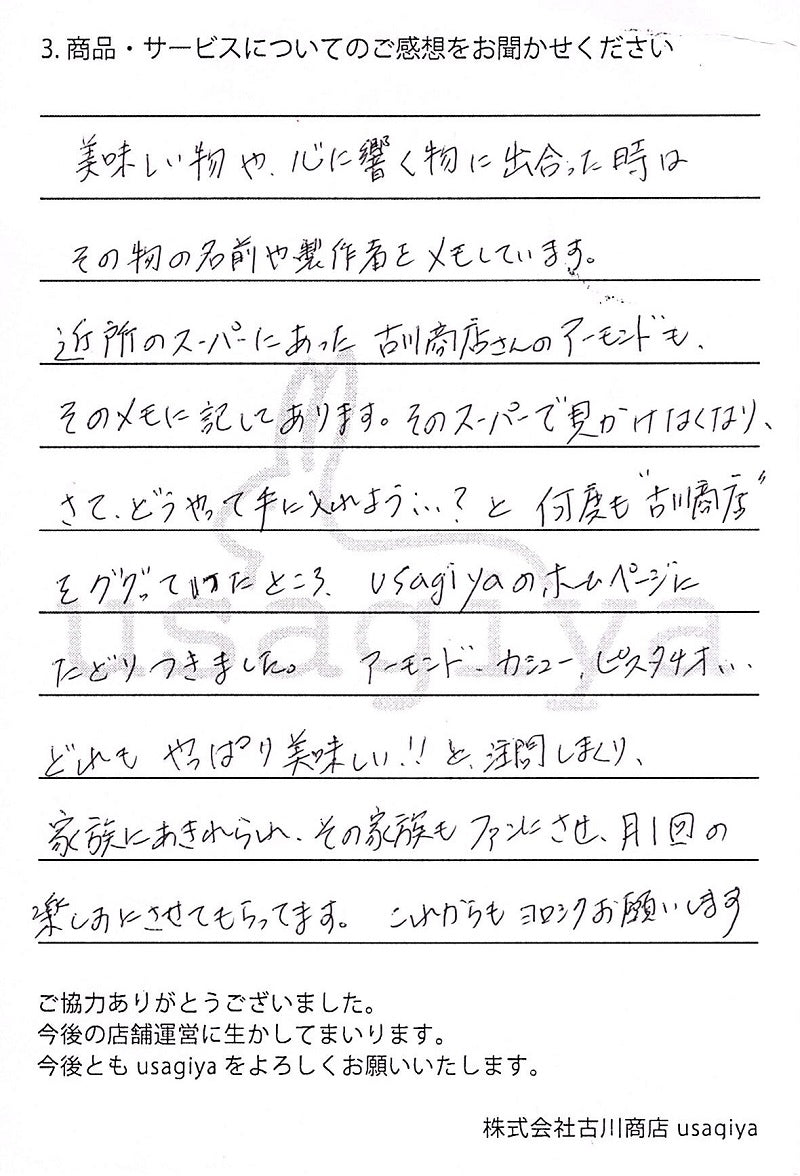 3. 商品・サービスについてのご感想をお聞かせください
美味しい物や、心に響く物に出合った時は
その物の名前や製作者をメモしています。
近所のスーパーにあった 古川商店さんのアーモンドも、
そのメモに記してあります。そのスーパーで見かけなくなり、
さて、どうやって手に入れよう…?と 何度も"古川商店"
をググってみたところ、usagiyaのホームページに
たどりつきました。 アーモンド、カシュー、ピスタチオ…
どれも やっぱり美味しい!!と、注問しまくり、
家族にあきれられ、その家族も ファンにさせ、月1回の
楽しみにさせてもらってます。 これからもヨロシクお願いします
usagiya
ご協力ありがとうございました。
今後の店舗運営に生かしてまいります。
今後とも usagiya をよろしくお願いいたします。
株式会社古川商店 usagiya